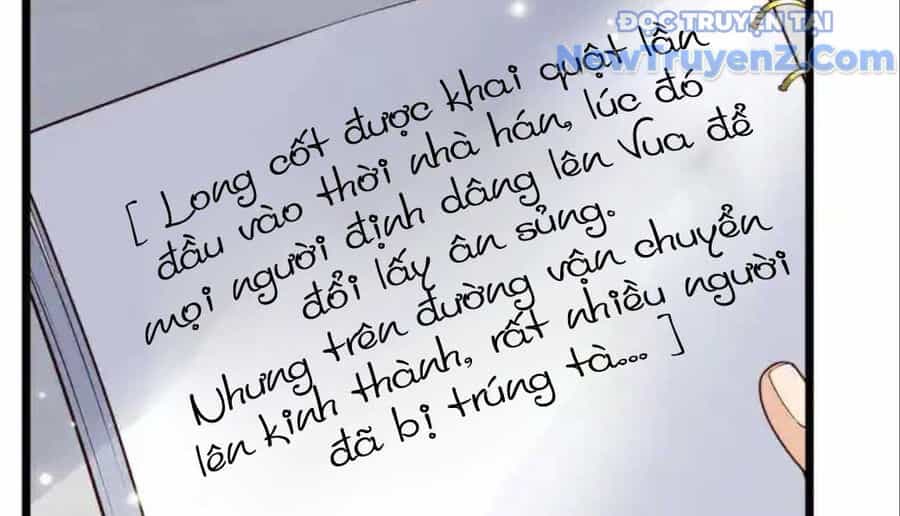 ĐỌC TRUYỆN TẠI
NowTruyenZ.com
[ Long cốt được khai quật lần
đầu vào thời nhà hán, lúc đó
mọi người định dâng lên Vua để
đổi lấy ân sủng.
Nhưng trên đường vận chuyển
lên kinh thành, rất nhiều người
đã bị trúng tà... ]